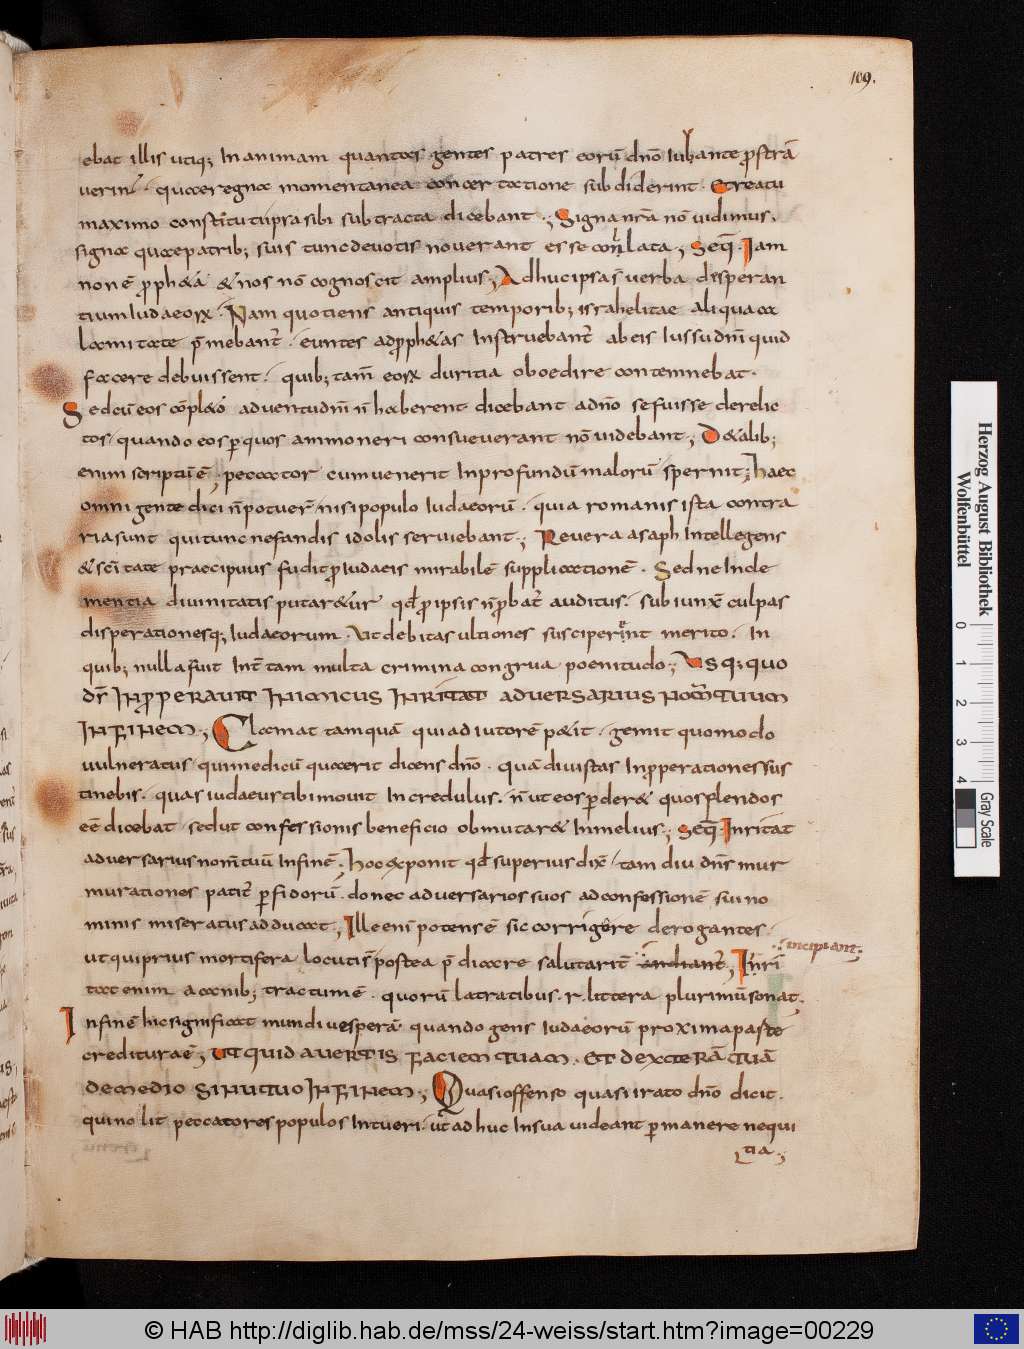 109.
ebat illis utiq; In animam quantas gentes patres eorū dn̄o Iubante ꝓstrā
verint̄· quae regna momentanea concertatione subdiderint· Et reatu
maximo constituti ipra sibi subtracta dicebant·; Signa nr̄a nō vidimus.
signa quae patrib; suis tunc devotis noverant esse conlata·; Seq̄· Iam
non ē ꝓph&a & nos nō cognoscit amplius·; Adhuc ipsa s̄ verba disperan
tium Iudaeoꝝ· Nam quotiens antiquis temporib; israhelitae aliqua ca
lamitate p̄mebant̄· euntes ad ꝓph&as Instruebant̄ ab eis Iussu dn̄i quid
facere debuissent· quib; tam̄ eoꝝ duritia oboedire contemnebat·
Sed cū eos cōpl&o adventu dn̄i n̄ haberent dicebant a dn̄o se fuisse derelic
tos· quando eos ꝑ quos ammoneri consueverant nō videbant·; D& alib;
enim scriptū ē· peccator cum venerit In profundū malorū spernit·; haec
omni gente dici n̄ potuer̄ nisi populo Iudaeorū· quia romanis ista contra
ria sunt qui tunc nefandis idolis serviebant·; Revera asaph Intellegens
& sc̄itate praecipuus fudit ꝓ Iudaeis mirabilē supplicationē· Sed ne Incle
mentia divinitatis putar&ur qd̄ ꝓ ipsis n̄ ꝓbat̄ auditus· subiunx̄ culpas
disperationesq; Iudaeorum· Ut debitas ultiones susciperent merito· In
quib; nulla fuit Int̄ tam multa crimina congrua poenitudo·; Usq; quo
dr̄ Inꝓperavit Inimicus Inritat adversarius nom̄ tuum
In finem·; Clamat tamquā qui adiutorē p&it· gemit quomodo
vulneratus qui medicū quaerit dicens dn̄o· quā diu istas Inꝓperationes sus
tinebis· quas iudaeus tibi movit Incredulus· n̄ ut eos ꝑder& quos plendos
eē dicebat sed ut confessionis beneficio obmutar& In melius·; Seq̄· Inritat
adversarius nom̄ tuū In finē·; hoc exponit qd̄ superius dix̄· tam diu dn̄s mur
murationes patit̄ ꝑfidorū· donec adversarios suos ad confessionē sui no
minis miseratus adducat·; Ille eni potens ē sic corrigere derogantes·
ut qui prius mortifera locuti s̄ postea p̄dicare salutarit̄ indiant̄·; Inri
incipiant·
tat enim a canib; tractum ē· quorū latratibus· r· littera plurimū sonat·
In finē hic significat mundi vesperā quando gens Iudaeorū proxima paste
creditura ē·; Ut quid avertis faciem tuam· Et dexterā tuā
de medio sinu tuo In finem·; Quasi offenso quasi irato dn̄o dicit·
qui nolit peccatores populos Intueri· ut adhuc In sua videant ꝑmanere nequi
tia·;
Herzog August Bibliothek
Wolfenbüttel
0 1 2 3 4
Gray Scale
© HAB http://diglib.hab.de/mss/24-weiss/start.htm?image=00229